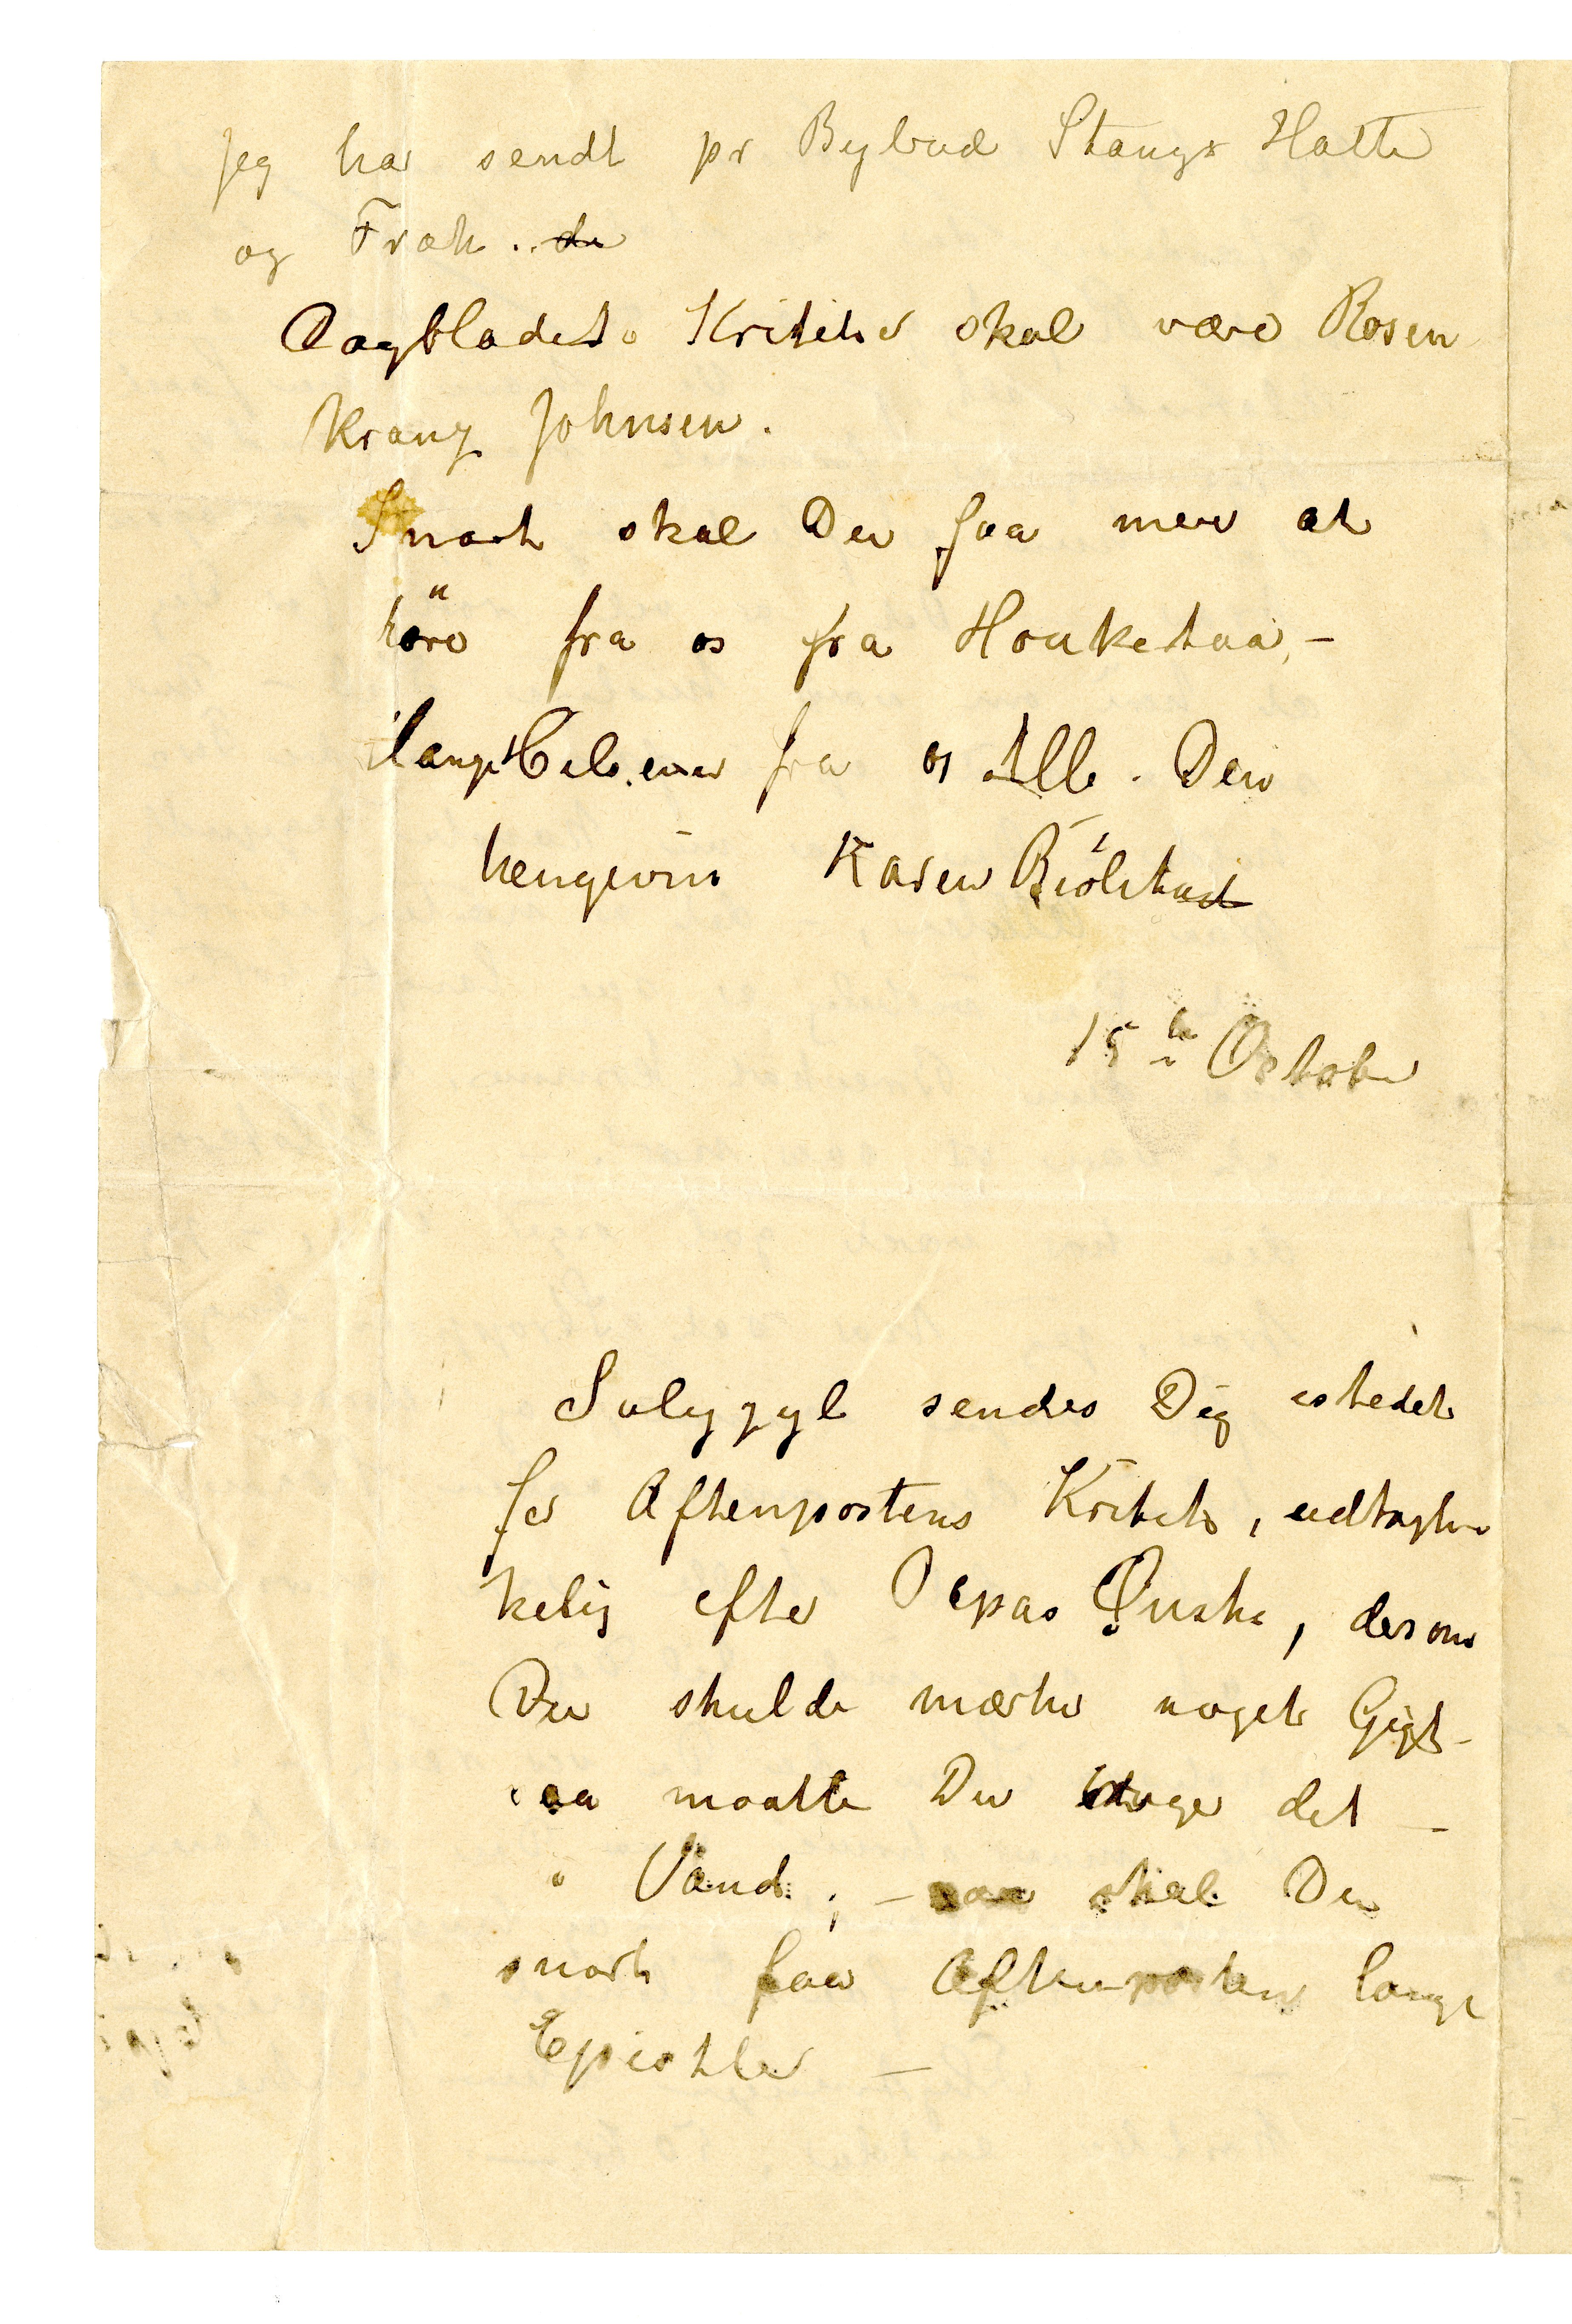 Jeg har sendt pr Bybud Stangs Hatte
og Frak. da
Dagbladets Kritiker skal være Rosen
kranz Johnsen.
Snart skal Du faa mere at
høre fra os fra Hauketua, –
fra os Alle. Din
hengivne Karen Bjölstad
15de Oktober
Salycyl sendes Dig istedet
for Aftenpostens Kritik, udtryk
kelig efter Papas Ønske, dersom
Du skulde mærke noget Gigt –
saa maatte Du bruge det –
i Vand; – saa skal Du
snart faa Aftenposten lange
Epistler –